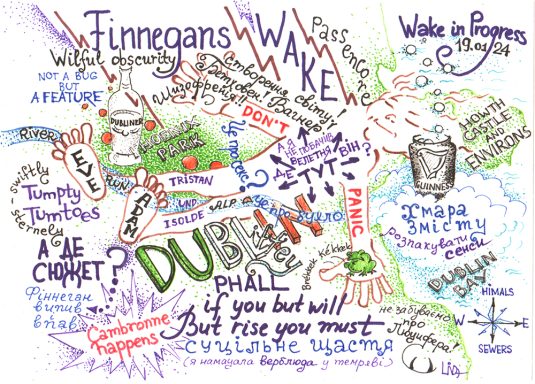 Finnegans
WAKE
Passencore
Wake in Progress
19.01.24
Wilful obscurity
NOT A BUG
BUT
A FEATURE
Створення світу!
Бетховен. Вагнер
Шизофренія!!
DON'T
PANIC
DUBLINER
PHOENIX
PARK
HOWTH
CASTLE
AND
ENVIRONS
GUINNESS
River
RUN
EVE
ADM
swiftly
sternely
Tumpty
Tumtoes
TRISTAN
UND
ISOLDE
SALP
Це про секс?
Це про
А Я
НЕ ПОБАЧИВ
ВЕЛЕТНЯ
ДЕ
ВІН?
ТУТ
DUBLIN
liffey
Brekkek Kékkek
Хмара
змісту
розпакувати
сенси
DUBLIN
BAY
А ДЕ
СЮЖЕТ?
Фіннеган
випив
і впав
Cambronne
happens
PHALL
if you but will
But rise you must
суцільне щастя
(я намацала верблюда у темряві)
не забуваємо
про
Люцифера!
HIMALS
W
E
SEWERS